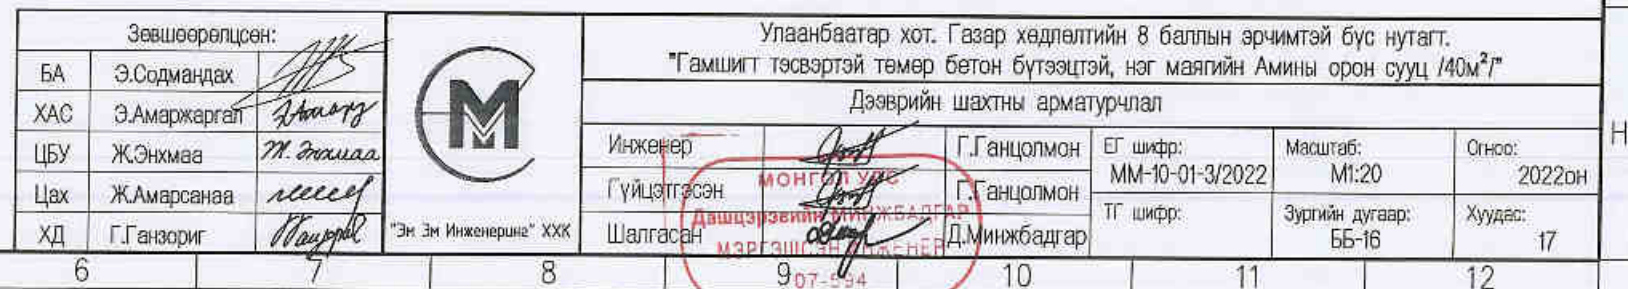 Зөвшөөрөлцсөн:
БА Э.Содмандах
ХАС Э.Амаржаргал
ЦБУ Ж.Энхмаа Ж. Энхмаа
Цах Ж.Амарсанаа
ХД Г.Ганзориг
М
"Эм Эм Инженеринг" ХХК
Улаанбаатар хот. Газар хөдлөлтийн 8 баллын эрчимтэй бүс нутагт.
"Гамшигт тэсвэртэй төмөр бетон бүтээцтэй, нэг маягийн Амины орон сууц /40м²/"
Дээврийн шахтны арматурчлал
Инженер Г.Ганцолмон
Гүйцэтгэсэн Г.Ганцолмон
Шалгасан Д.Минжбадгар
ЕГ шифр:
ММ-10-01-3/2022
ТГ шифр:
Масштаб:
М1:20
Зургийн дугаар:
ББ-16
Огноо:
2022он
Хуудас:
17
МОНГОЛ УЛС
Дашцэрэвийн МИНЖБАДГАР
МЭРГЭШСЭН ИНЖЕНЕР
07-594
6 7 8 9 10 11 12
Н